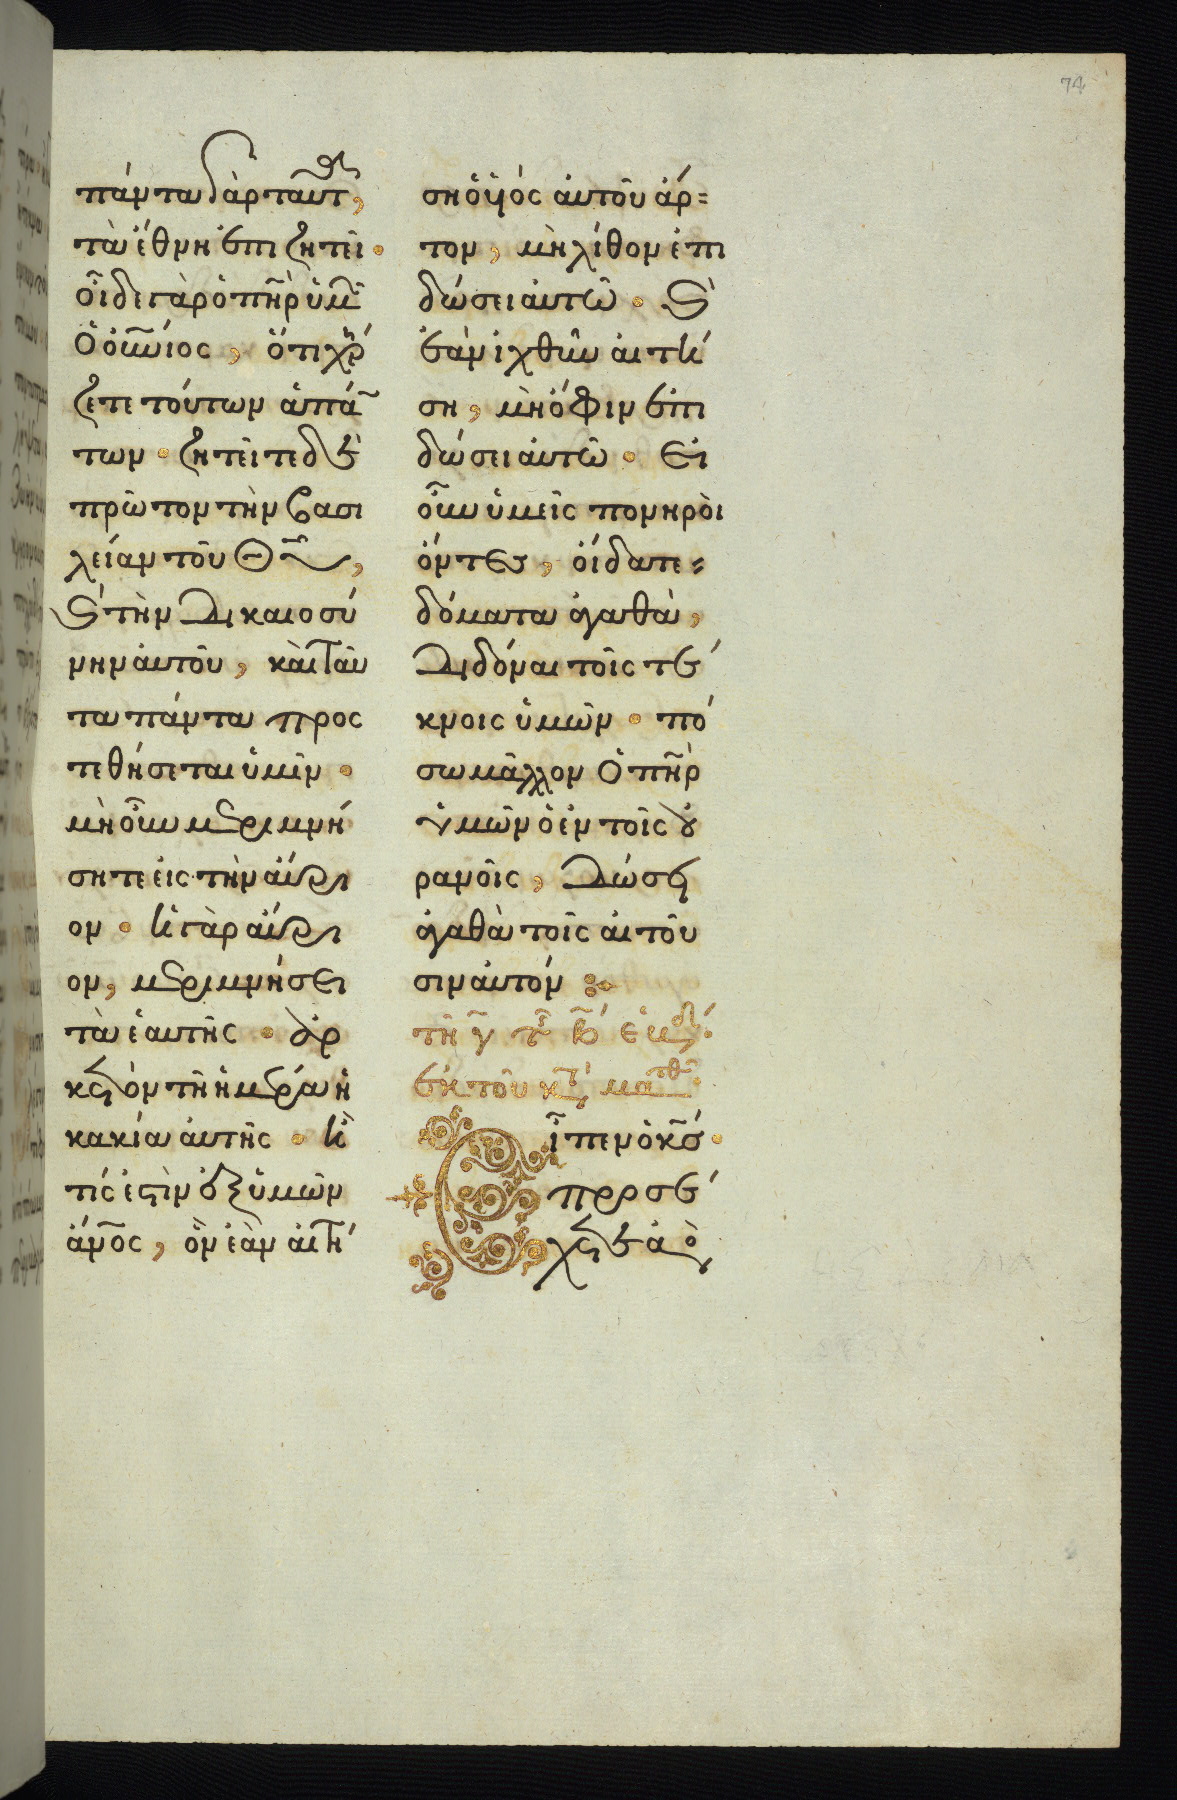 74
πάντα γὰρ ταῦτα,
τὰ ἔθνη ἐπιζητεῖ·
οἶδε γὰρ ὁ πη̅ρ ὑμῶ̅
ὁ οὐ̅νιος, ὅτι χρῄ
ζετε τούτων ἁπά̅
των· ζητεῖτε δὲ
πρῶτον τὴν βασι
λείαν τοῦ Θυ̅,
καὶ τὴν δικαιοσύ
νην αὐτοῦ, καὶ ταῦ
τα πάντα προς
τεθήσεται ὑμῖν·
μὴ οὖν μεριμνή
σητε εἰς τὴν αὔρι
ον· ἡ γὰρ αὔρι
ον, μεριμνήσει
τὰ ἑαυτῆς· ἀρ
κετὸν τῇ ἡμέρα ἡ
κακία αὐτῆς· ἢ
τίς ἐστιν ἐξ ὑμῶν
ἄνο̅ς, ὃν ἐὰν αἰτή
ση ὁ υἱὸς αὐτοῦ ἄρ=
τον, μὴ λίθον ἐπι
δώσει αὐτῶ· καὶ
ἐὰν ἰχθὺν αἰτή
ση, μὴ ὄφιν ἐπι
δώσει αὐτῶ· εἰ
οὖν ὑμεῖς πονηροὶ
ὄντες, οἴδατε=
δόματα ἀγαθὰ,
διδόναι τοῖς τέ
κνοις ὑμῶν· πό
σω μᾶλλον ὁ πη̅ρ
ὑμῶν ὁ ἐν τοῖς οὐ
ρανοῖς, δώσει
ἀγαθὰ τοῖς αἰτοῦ
σιν αὐτόν
τῆ γ τ β ἑβδ
ἐκ τοῦ κτ ματθ
Εἶπεν ὁ κς̅·
προσέ
χετε ἀπὸ